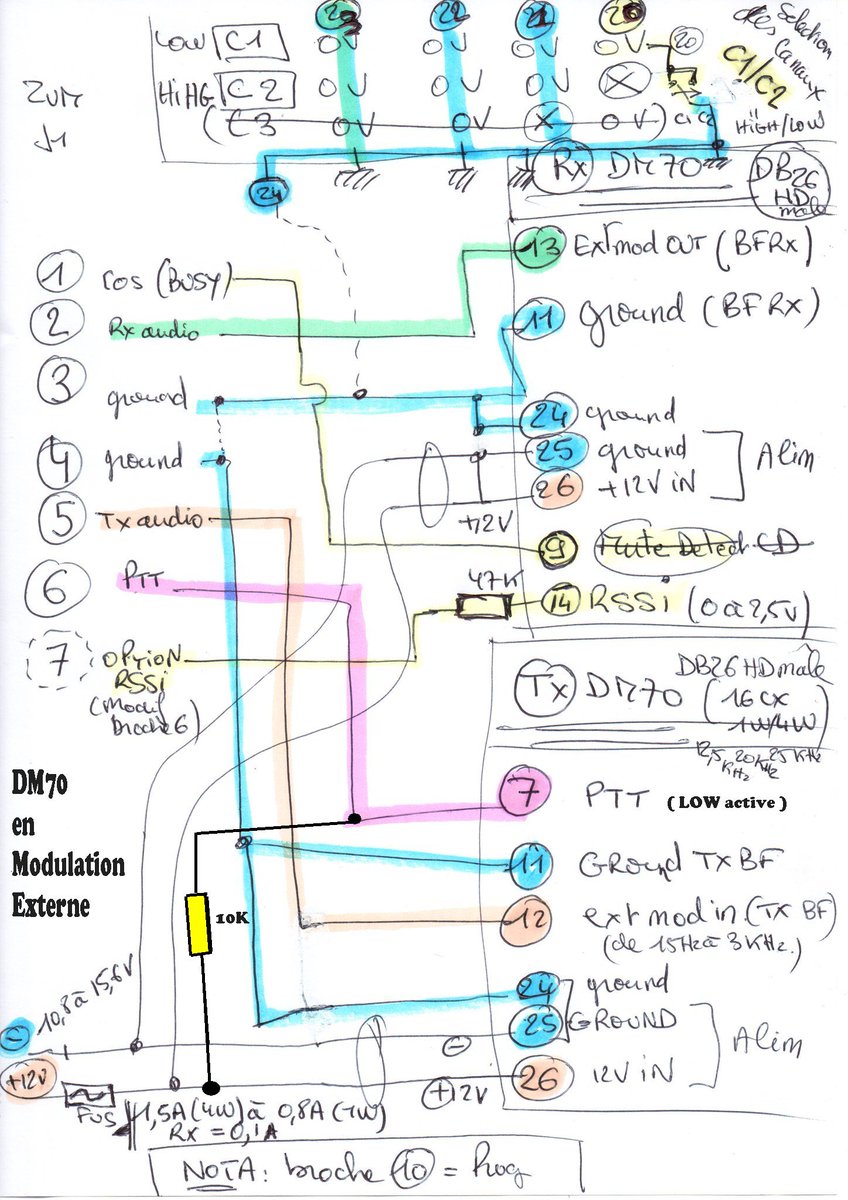 23 22 21 20
LOW C1 0V 0V 0V 0V 20
HiHG C2 0V 0V 0V X
(C3 0V 0V X 0V) C1 C2
Selection
des Canaux
C1/C2
HIGH/LOW
ZUM
J1
24
Rx DM70 DB26
HD
male
1 cos (BUSY)
13 Ext mod OUT (BF Rx)
2 Rx audio
11 ground (BF RX)
3 ground
24 ground
4 ground
25 ground
Alim
26 +12V iN
5 Tx audio
+12V
9 Mute Detect CD
6 PTT
47K
14 RSSi (0 à 2,5V)
7 OPTiON
RSSi
(Modif
broche 6)
Tx DM70 DB26 HD male
(16 CX
1W/4W)
12,5 KHz 20 KHz 25 KHz
DM70
en
Modulation
Externe
7 PTT ( LOW active )
11 GRound TX BF
10K
12 ext mod in (TX BF)
(de 15Hz à 3 KHz.)
24 ground
10,8 à 15,6V
- 25 GROUND -
Alim
+12V 26 12V iN
+12V
FUS 1,5A (4W) à 0,8A (1W)
Rx = 0,1A
NOTA: broche 10 = Prog